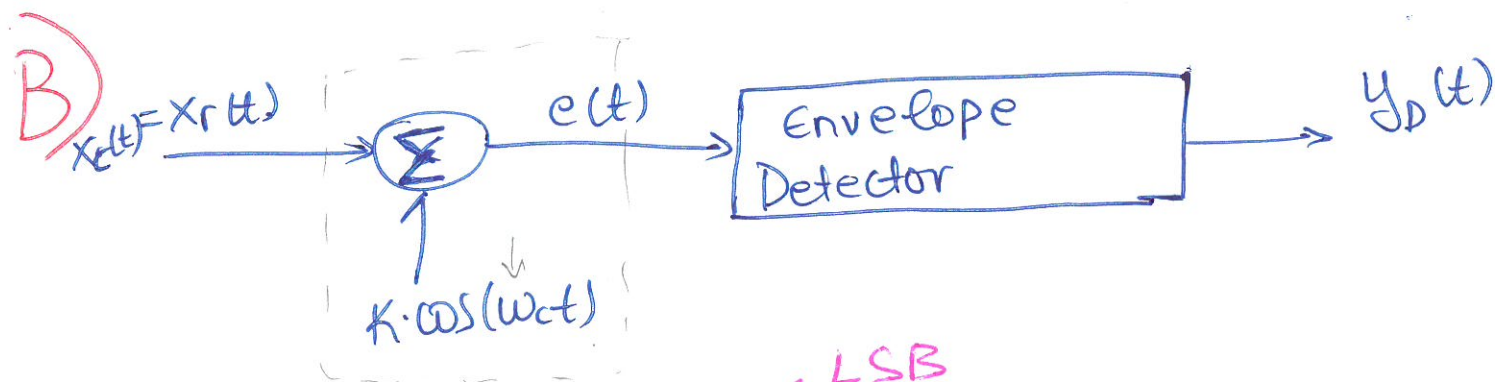 B)
xc(t)=xr(t)
Σ
e(t)
Envelope
Detector
yD(t)
K·cos(ωct)
LSB